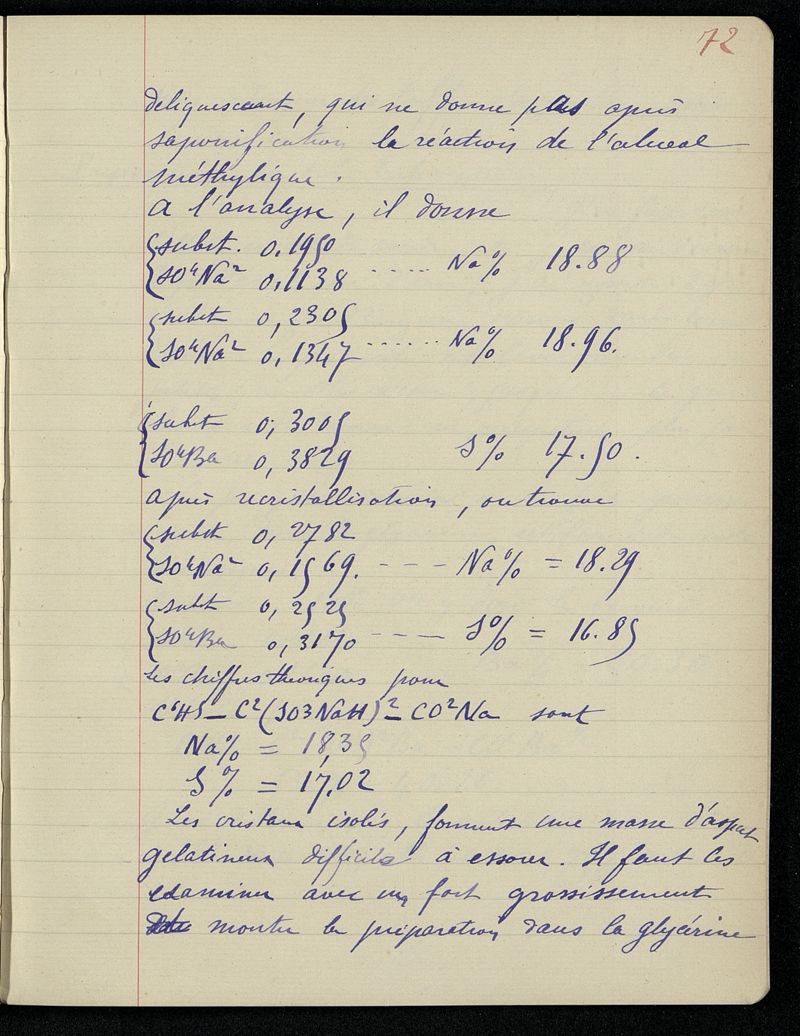 72
deliquescent, qui ne donne pas après
saponification la réaction de l'alcool
méthylique.
A l'analyse, il donne
subst. 0,1950
SO⁴Na² 0,1138 ..... Na% 18.88
subst 0,2305
SO⁴Na² 0,1347 ...... Na% 18.96.
subst 0,3005
SO⁴Ba 0,3829 S% 17.50.
après recristallisation, on trouve
subst 0,2782
SO⁴Na² 0,1569. --- Na% = 18.29
subst 0,2525
SO⁴Ba 0,3170 --- S% = 16.85
les chiffres theoriques pour
C⁶H5 - C²(SO3NaH)² - CO²Na sont
Na% = 18,35
S% = 17.02
Les cristaux isolés, forment une masse d'aspect
gelatineux difficile à essorer. Il faut les
examiner avec un fort grossissement
monter la préparation dans la glycérine